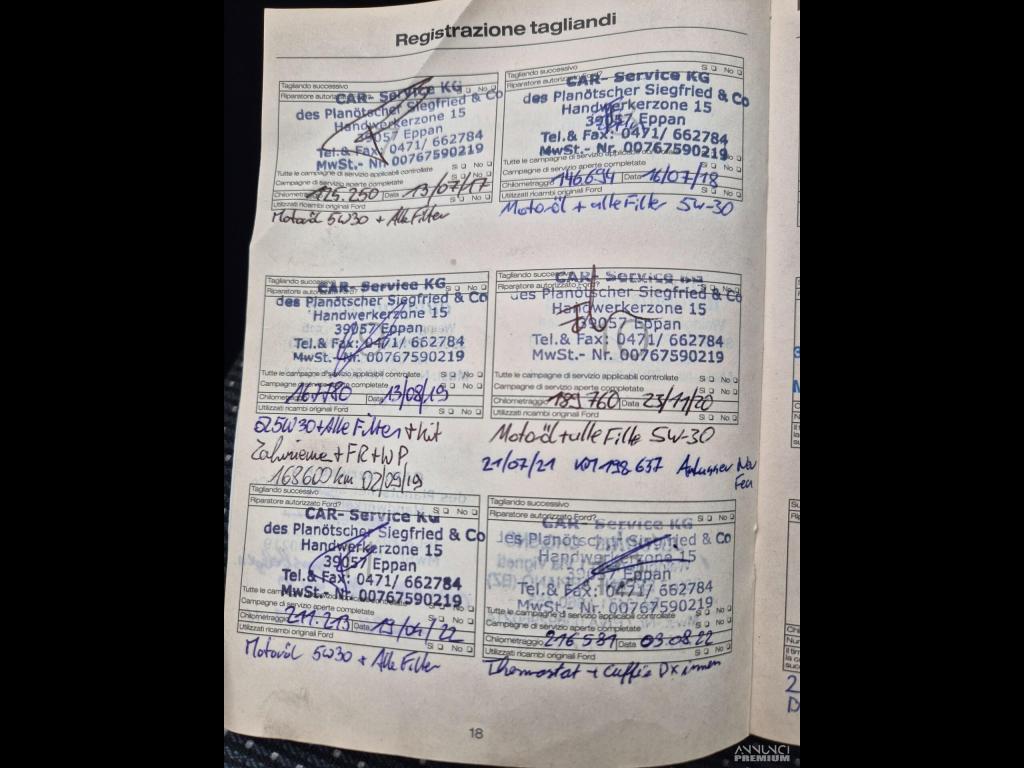 Registrazione tagliandi
Sì No
Tagliando successivo
Riparatore autorizzato Ford? Sì No
CAR- Service KG
des Planötscher Siegfried & Co
Handwerkerzone 15
39057 Eppan
Tel.& Fax: 0471/ 662784
MwSt.- Nr. 00767590219
Tutte le campagne di servizio applicabili controllate Sì No
Campagne di servizio aperte completate Sì No
Chilometraggio 125.250 Data 13/07/17
Utilizzati ricambi originali Ford Sì No
Motoröl 5W30 + Alle Filter
Tagliando successivo
Riparatore autorizzato Ford? Sì No
CAR- Service KG
des Planötscher Siegfried & Co
Handwerkerzone 15
39057 Eppan
Tel.& Fax: 0471/ 662784
MwSt.- Nr. 00767590219
Tutte le campagne di servizio applicabili controllate
Campagne di servizio aperte completate Sì No
Chilometraggio 146.694 Data 16/07/18
Utilizzati ricambi originali Ford Sì No
Motoröl + alle Filter 5W-30
Tagliando successivo
Riparatore autorizzato Ford?
CAR- Service KG
des Planötscher Siegfried & Co
Handwerkerzone 15
39057 Eppan
Tel.& Fax: 0471/ 662784
MwSt.- Nr. 00767590219
Tutte le campagne di servizio applicabili controllate Sì No
Campagne di servizio aperte completate Sì No
Chilometraggio 167.780 Data 13/08/19
Utilizzati ricambi originali Ford Sì No
Öl 5W30 + Alle Filter + Kit
Zahnrieme + FR + WP
168600 km 02/09/19
Tagliando successivo
Riparatore autorizzato Ford?
CAR- Service KG
des Planötscher Siegfried & Co
Handwerkerzone 15
39057 Eppan
Tel.& Fax: 0471/ 662784
MwSt.- Nr. 00767590219
Tutte le campagne di servizio applicabili controllate Sì No
Campagne di servizio aperte completate Sì No
Chilometraggio 189760 Data 23/11/20
Utilizzati ricambi originali Ford Sì No
Motoröl + alle Filter 5W-30
21/07/21 198 637
Tagliando successivo
Riparatore autorizzato Ford? Sì No
CAR- Service KG
des Planötscher Siegfried & Co
Handwerkerzone 15
39057 Eppan
Tel.& Fax: 0471/ 662784
MwSt.- Nr. 00767590219
Tutte le campagne di servizio applicabili controllate Sì No
Campagne di servizio aperte completate Sì No
Chilometraggio 211.213 Data 13/04/22
Utilizzati ricambi originali Ford Sì No
Motoröl 5W30 + Alle Filter
Tagliando successivo
Riparatore autorizzato Ford? Sì No
CAR- Service KG
des Planötscher Siegfried & Co
Handwerkerzone 15
39057 Eppan
Tel.& Fax: 0471/ 662784
MwSt.- Nr. 00767590219
Tutte le campagne di servizio applicabili controllate Sì No
Campagne di servizio aperte completate Sì No
Chilometraggio 216581 Data 03.08.22
Utilizzati ricambi originali Ford Sì No
Thermostat + Cuffie Dx innen
18
ANNUNCI
PREMIUM